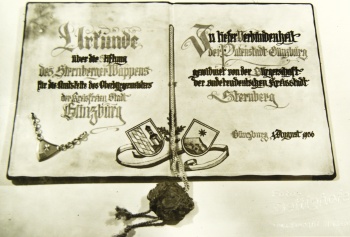 Urkunde
über die Stiftung
des Sternberger Wappens
für die Amtskette des Oberbürgermeisters
der Kreisfreien Stadt
Günzburg
In tiefer Verbundenheit
der Patenstadt Günzburg
gewidmet von der Bürgerschaft
der sudetendeutschen Kreisstadt
Sternberg
Günzburg, August 1966